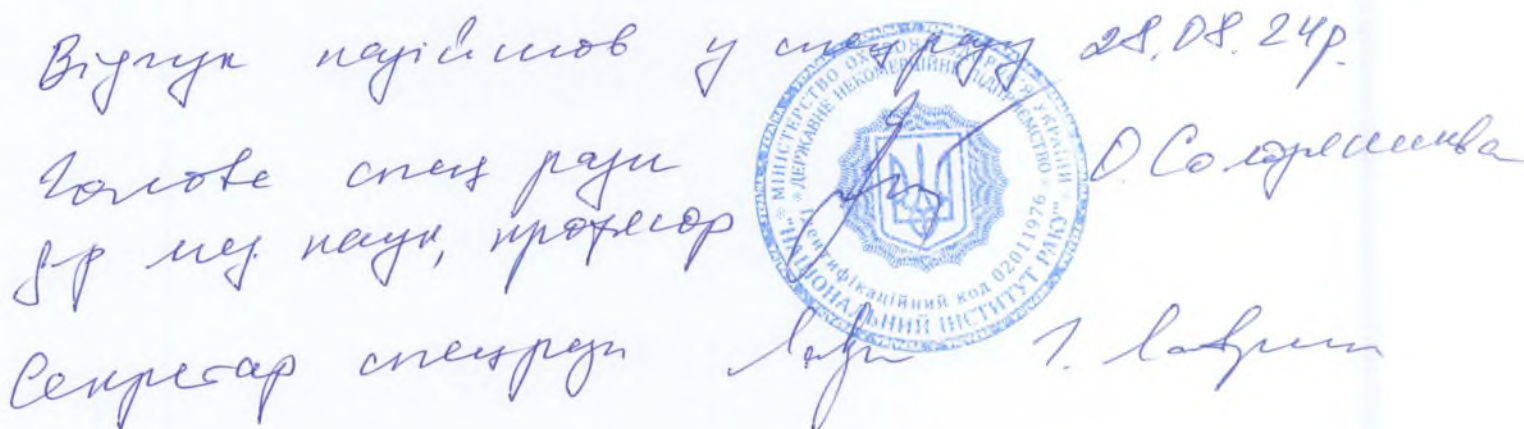 Відгук надійшов у спецраду 28.08.24р.
Голова спец ради О. Солодяннікова
д-р мед. наук, професор
Секретар спецради І. Лаврик
МІНІСТЕРСТВО ОХОРОНИ ЗДОРОВ'Я УКРАЇНИ
ДЕРЖАВНЕ НЕКОМЕРЦІЙНЕ ПІДПРИЄМСТВО
"НАЦІОНАЛЬНИЙ ІНСТИТУТ РАКУ"
Ідентифікаційний код 02011976